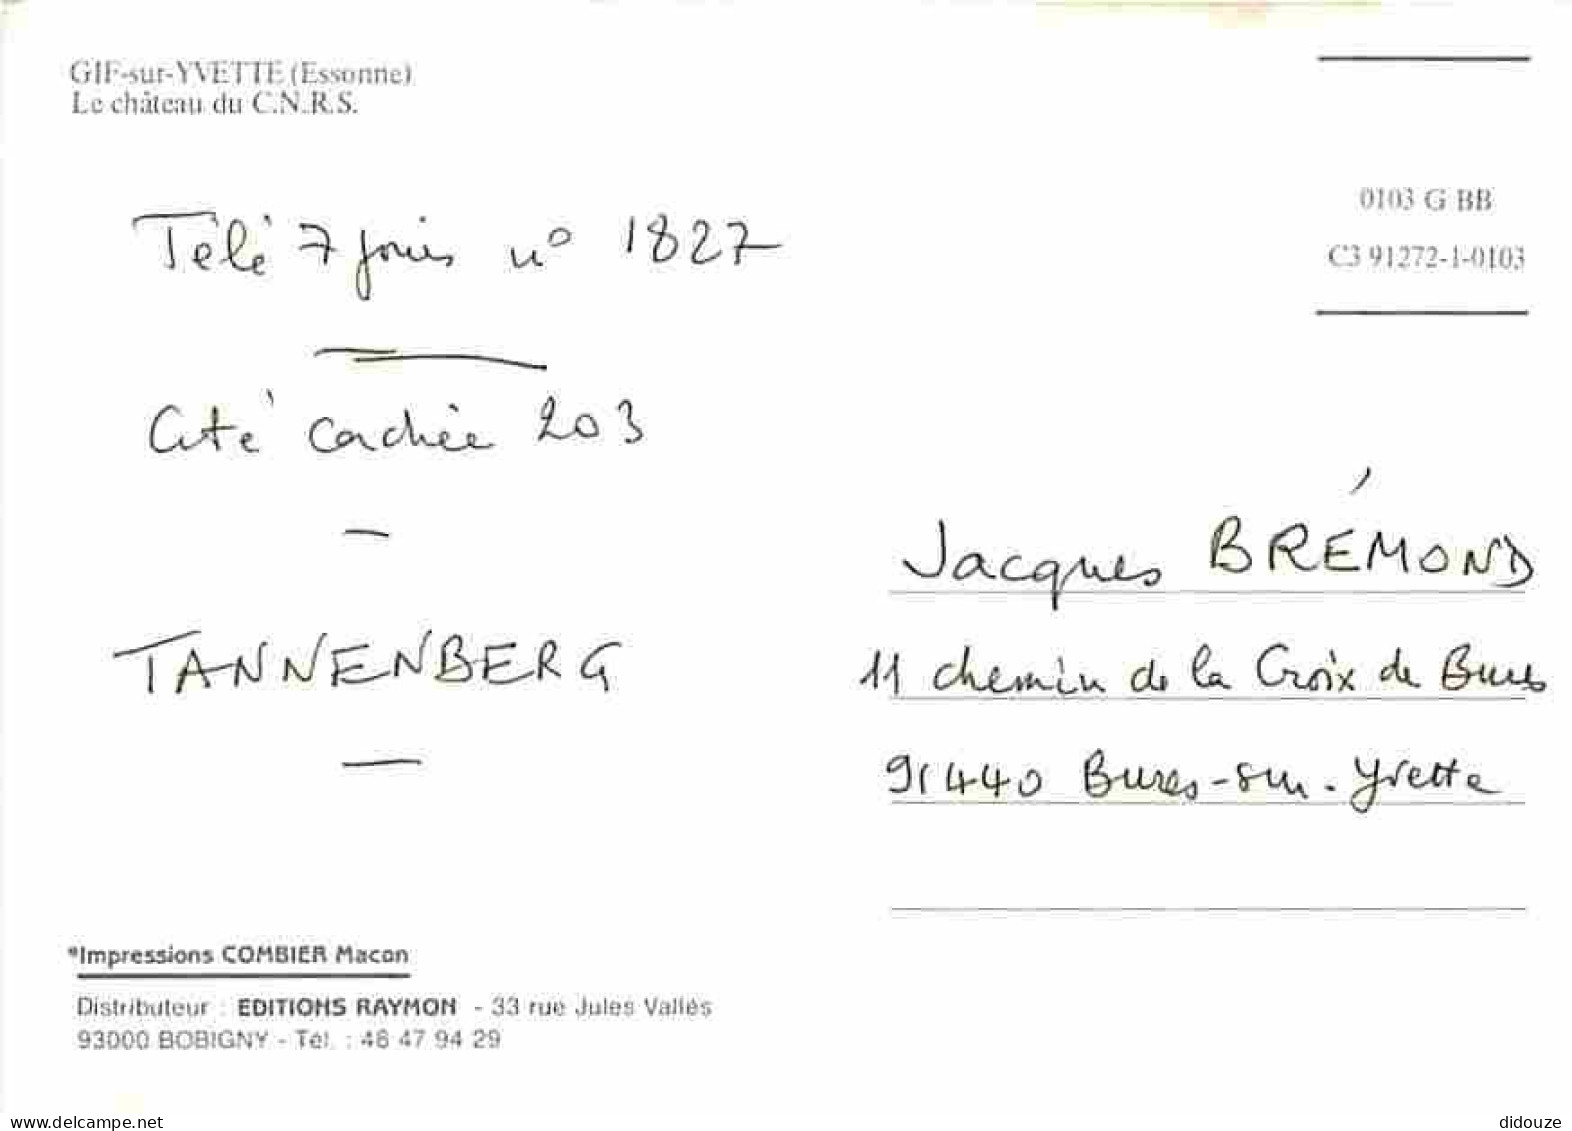 GIF-sur-YVETTE (Essonne)
Le château du C.N.R.S.
0103 G BB
C3 91272-1-0103
Télé 7 jours n° 1827
Cité cachée 203
TANNENBERG
Jacques BRÉMOND
11 chemin de la Croix de Bures
91440 Bures-sur-Yvette
*Impressions COMBIER Macon
Distributeur : EDITIONS RAYMON - 33 rue Jules Vallés
93000 BOBIGNY - Tél. : 48 47 94 29
www.delcampe.net
didouze